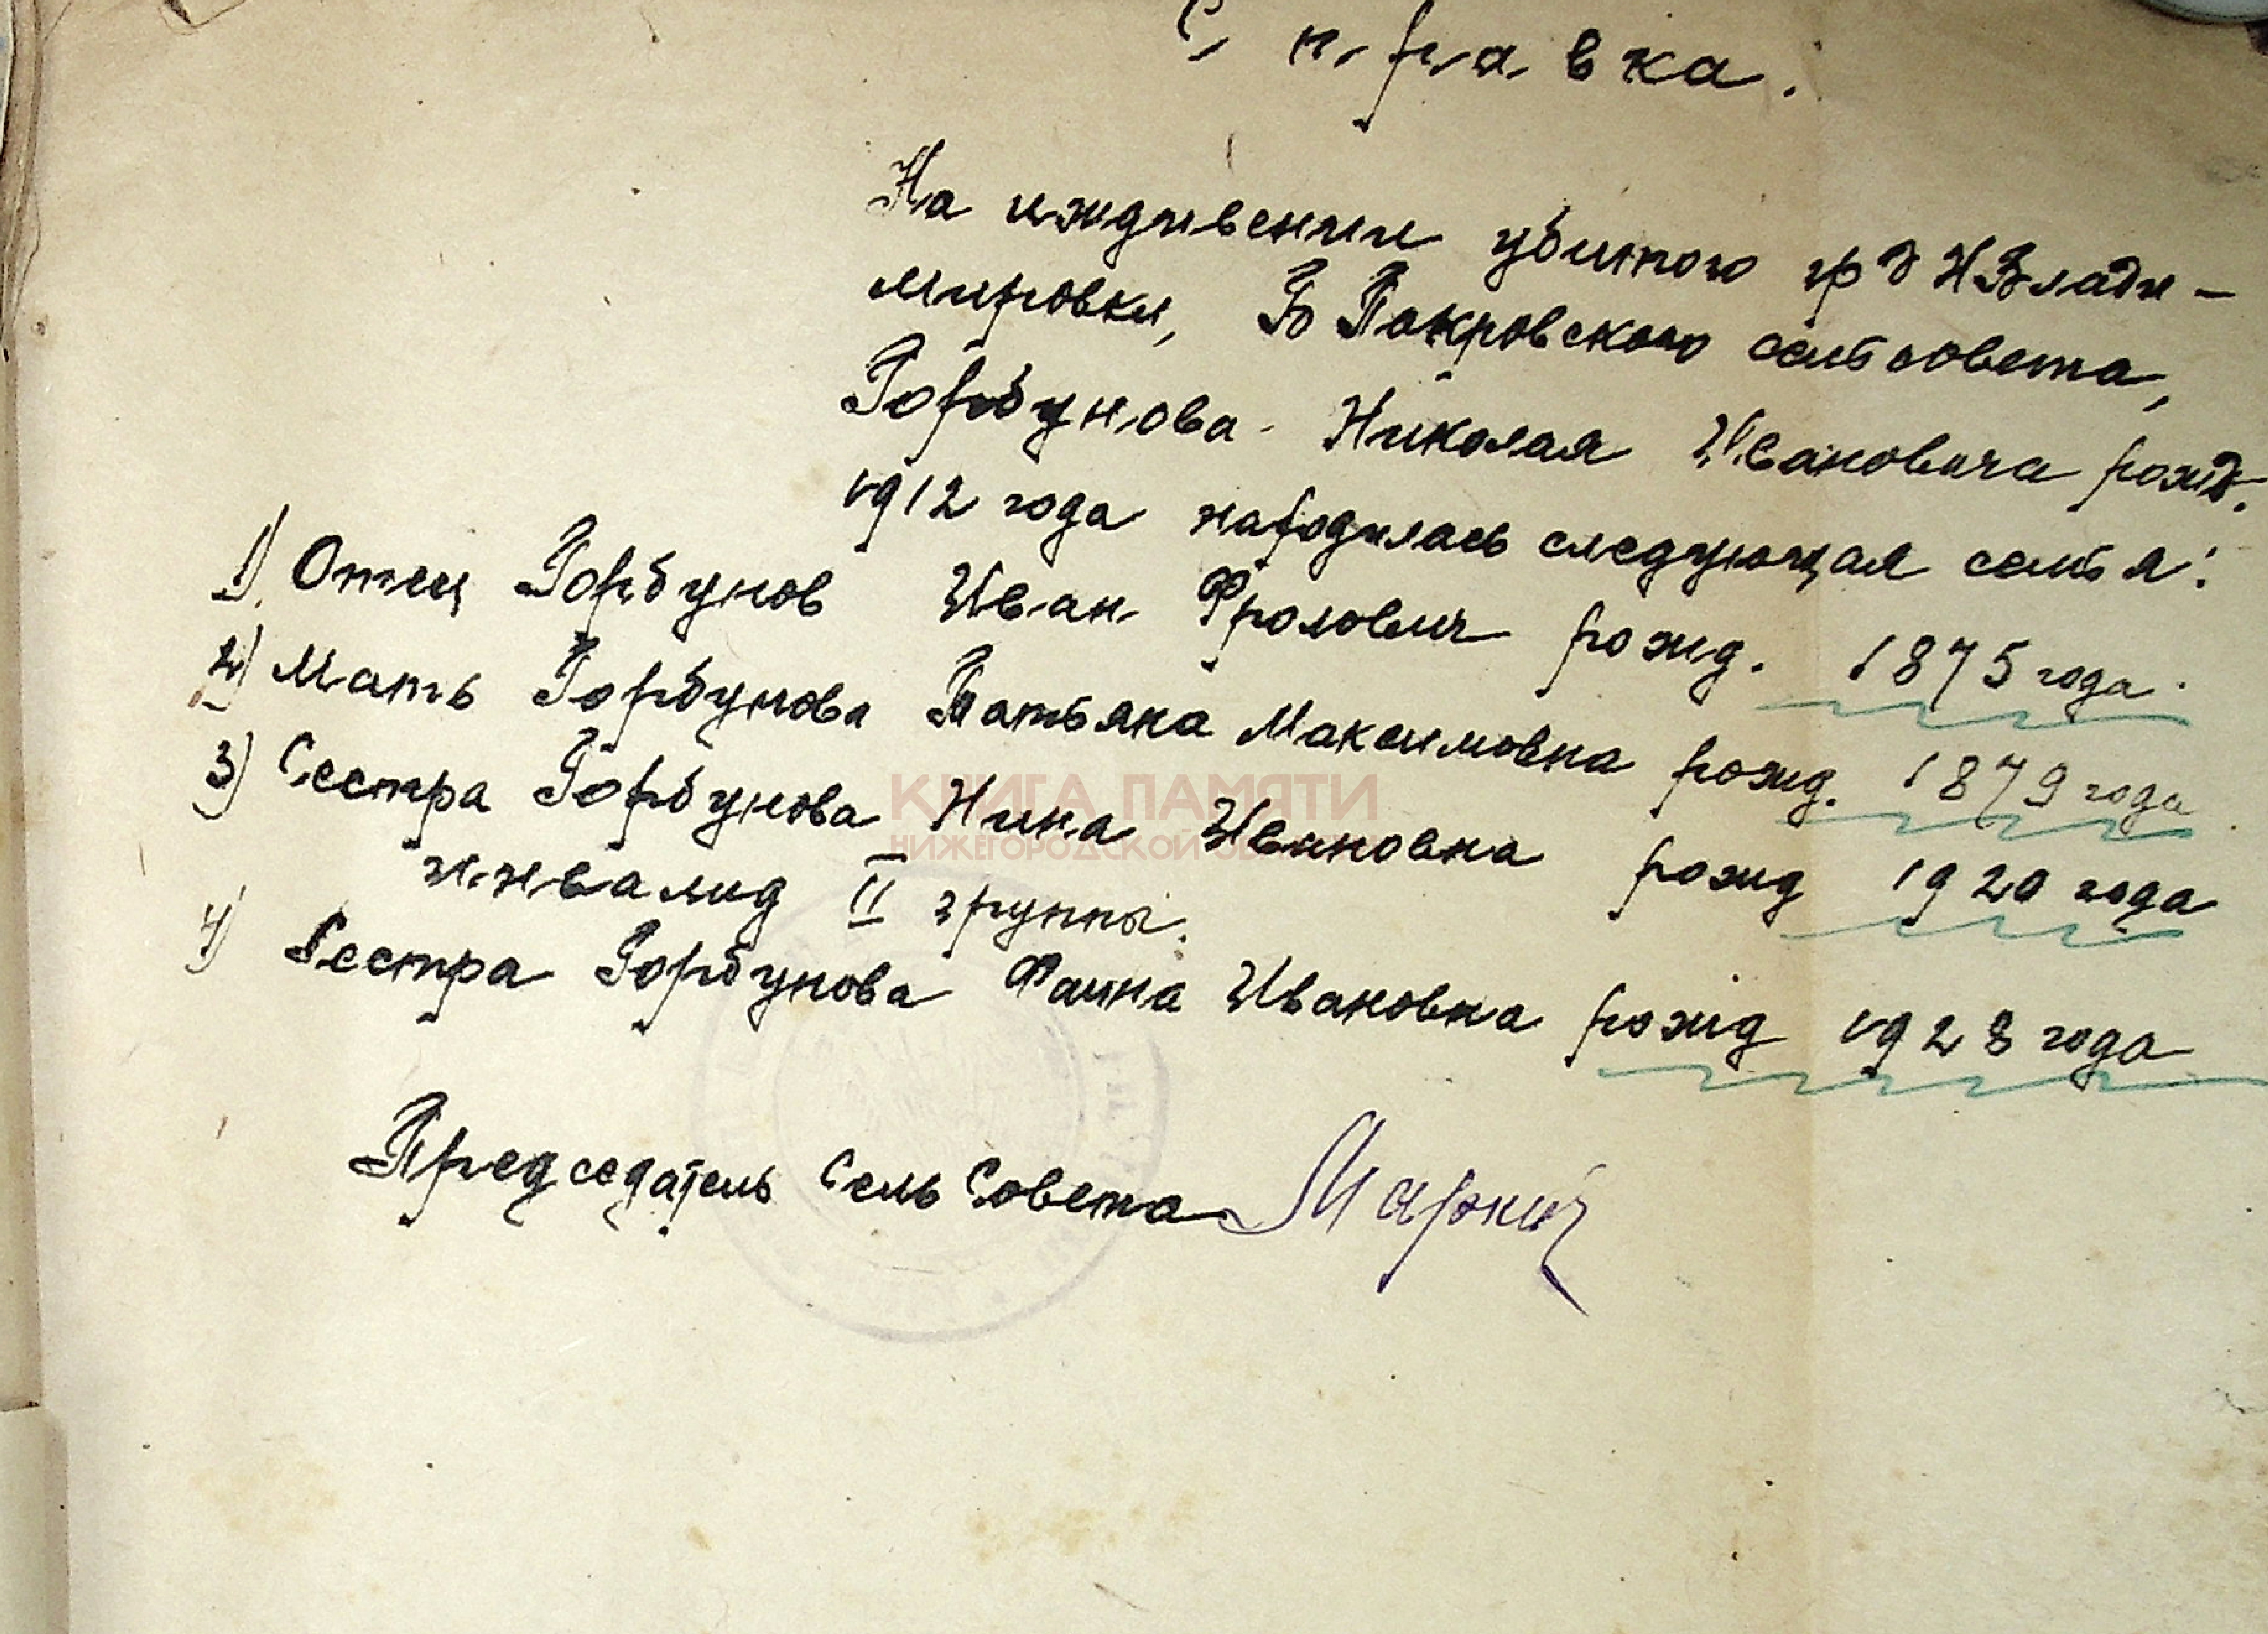 Справка.
На иждивении убитого гр д Н Влади-
мировки, Б Покровского сельсовета,
Горбунова Николая Ивановича рожд.
1912 года находилась следующая семья:
1) Отец Горбунов Иван Фролович рожд. 1875 года.
2) Мать Горбунова Татьяна Максимовна рожд. 1879 года
3) Сестра Горбунова Нина Ивановна рожд 1920 года
инвалид II группы.
4) Сестра Горбунова Фаина Ивановна рожд 1928 года
Председатель Сель Совета Маркин
КНИГА ПАМЯТИ
НИЖЕГОРОДСКОЙ